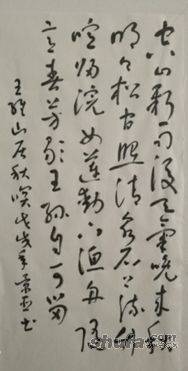 空山新雨後天氣晚來秋
明月松間照清泉石上流竹
喧歸浣女蓮動下漁舟隨
意春芳歇王孫自可留
王維山居秋暝戊戌年書